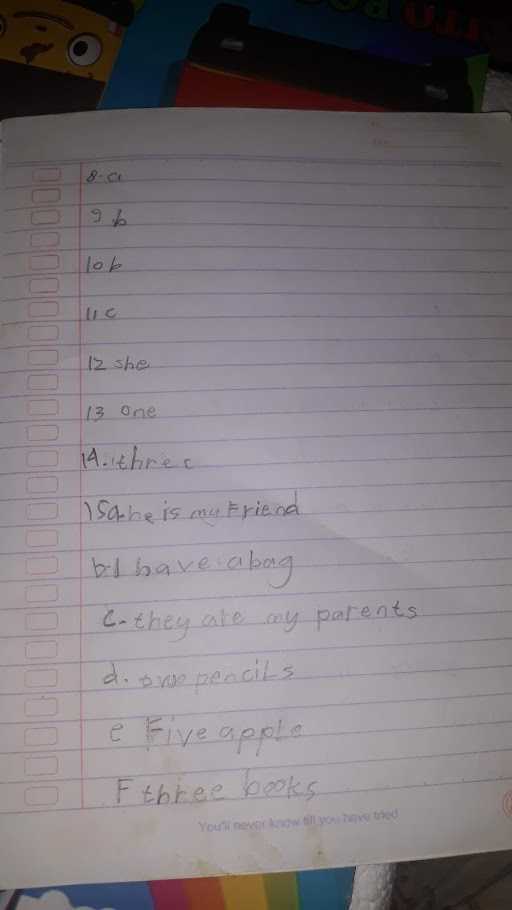 8-a
9 b
10 b
11 c
12 she
13 one
14. three
15a he is my Friend
b-I have a bag
C-they are my parents
d. two pencils
e Five apple
F three books
You'll never know till you have tried